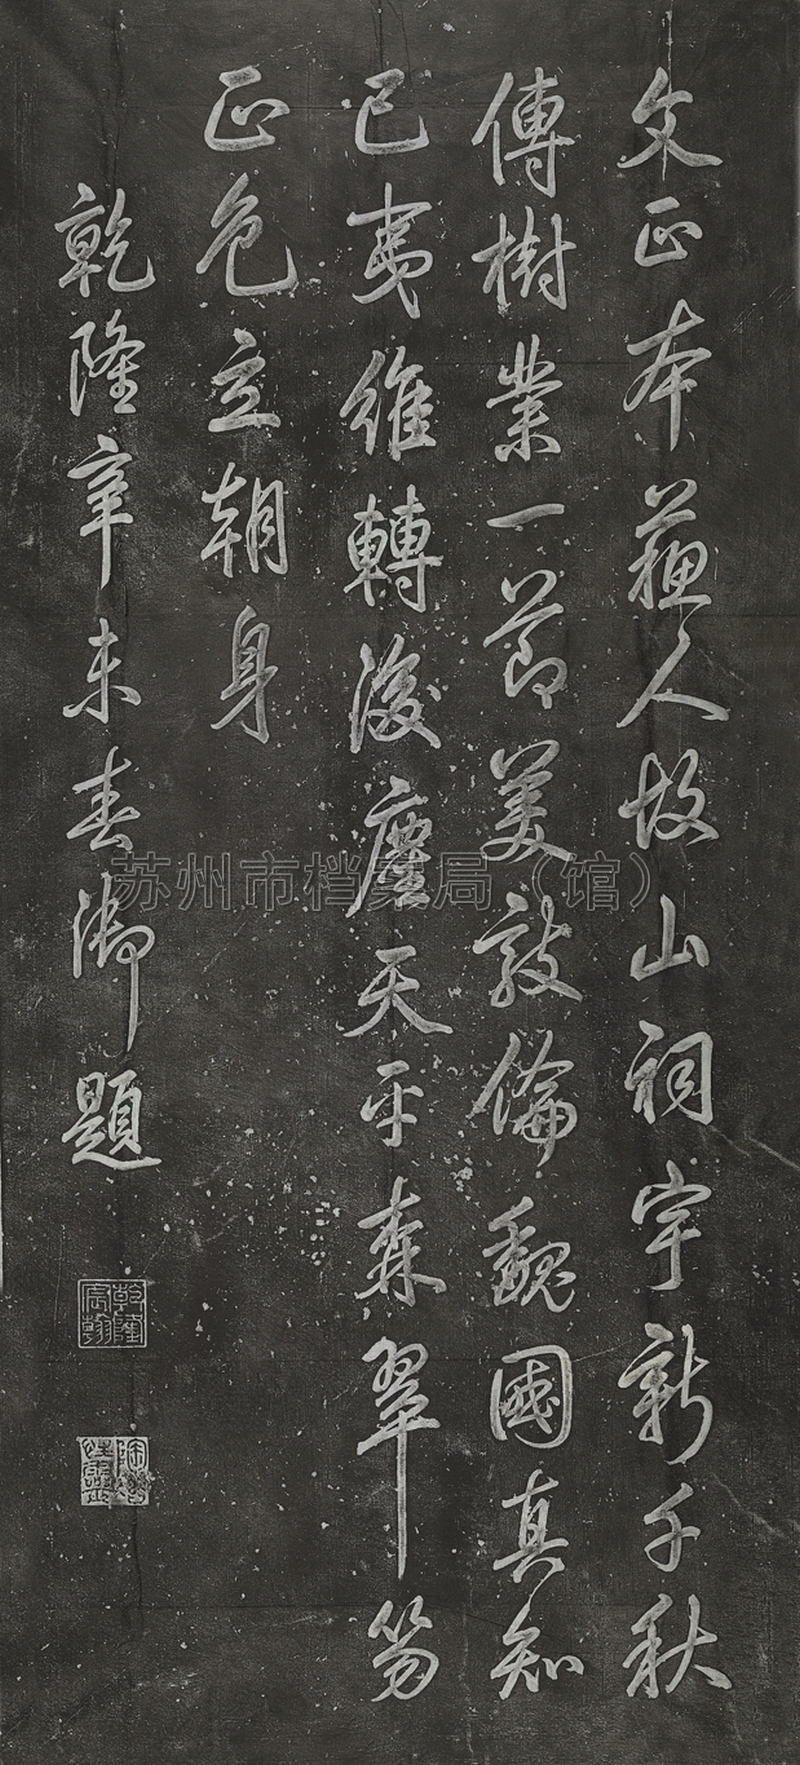 文正本蘓人故山祠宇新千秋
傳樹業一節美敦倫魏國真知
已夷維轉後塵天平森翠笏
正色立朝身
乾隆辛未春御題
乾隆宸翰
陶冶性靈
苏州市档案局（馆）